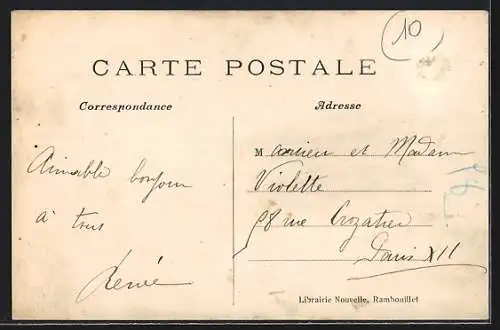 10
CARTE POSTALE
Correspondance
Adresse
Aimable bonjour
à tous
Hervé
M et Madame
Violette
98 rue Crozatier
Paris XII
Librairie Nouvelle, Rambouillet